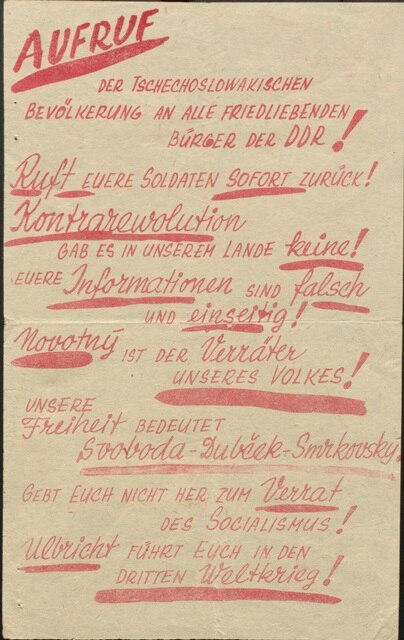 AUFRUF
DER TSCHECHOSLOWAKISCHEN
BEVÖLKERUNG AN ALLE FRIEDLIEBENDEN
BÜRGER DER DDR!
Ruft EUERE SOLDATEN SOFORT ZURÜCK!
Kontrarewolution
GAB ES IN UNSEREM LANDE keine!
EUERE Informationen SIND falsch
UND einseitig!
Novotný IST DER Verräter
UNSERES VOLKES!
UNSERE
Freiheit BEDEUTET
Svoboda-Dubček-Smrkovský.
GEBT EUCH NICHT HER ZUM Verrat
DES SOCIALISMUS!
Ulbricht FÜHRT EUCH IN DEN
DRITTEN Weltkrieg!